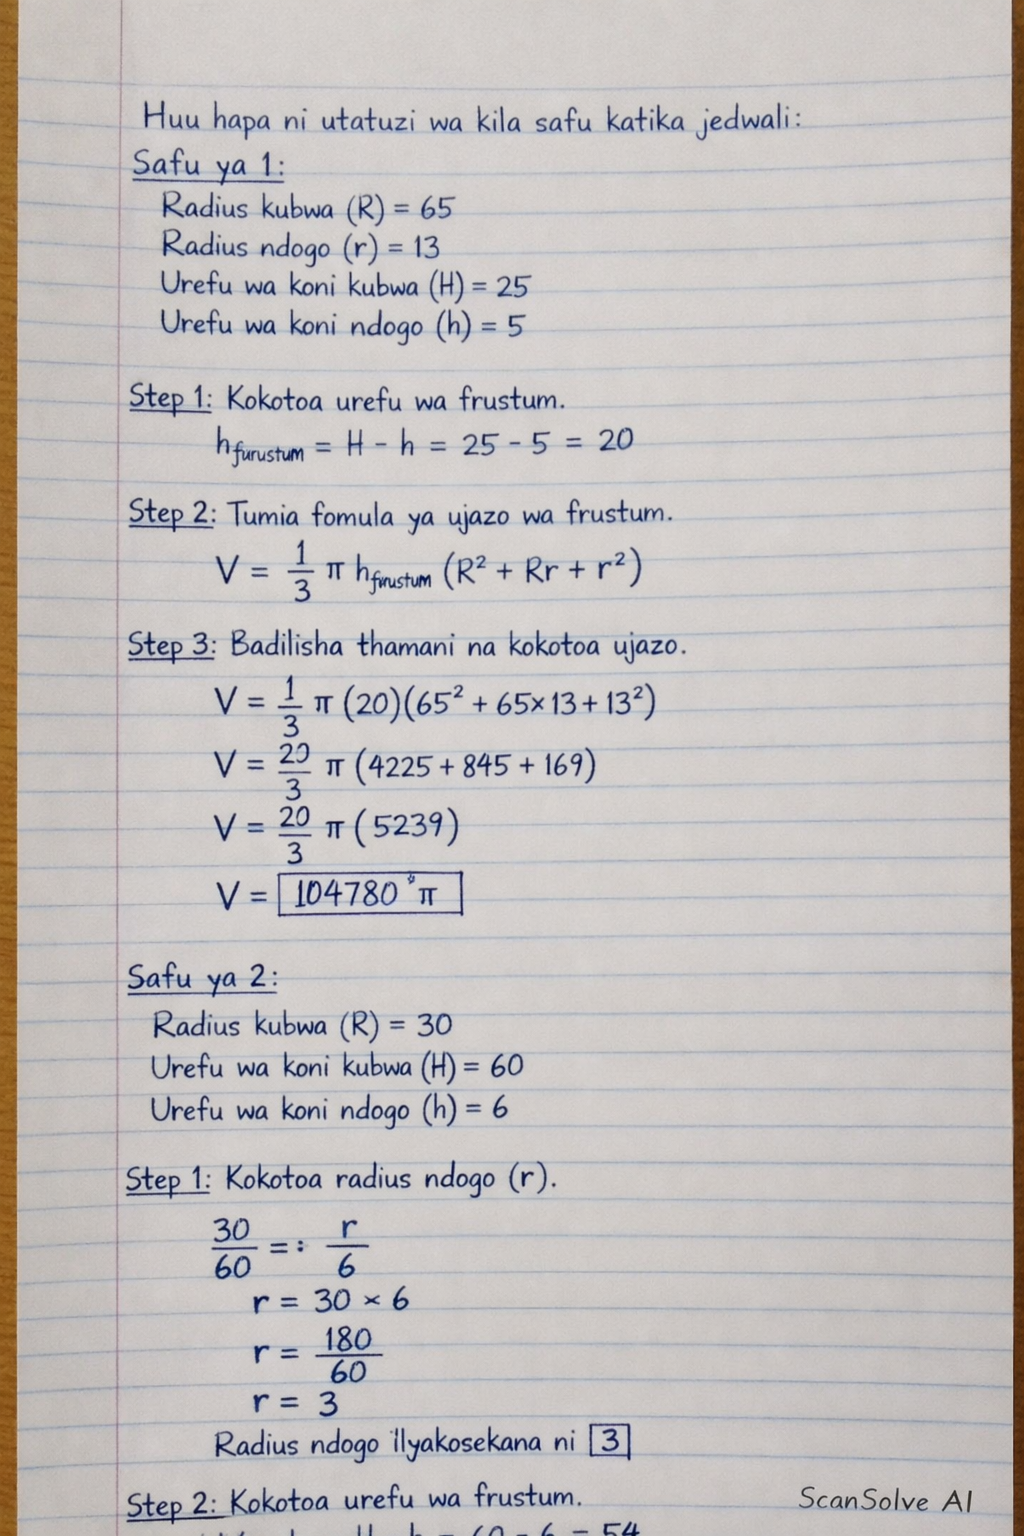 Huu hapa ni utatuzi wa kila safu katika jedwali:
Safu ya 1:
Radius kubwa (R) = 65
Radius ndogo (r) = 13
Urefu wa koni kubwa (H) = 25
Urefu wa koni ndogo (h) = 5
Step 1: Kokotoa urefu wa frustum.
h furustum = H - h = 25 - 5 = 20
Step 2: Tumia fomula ya ujazo wa frustum.
V = 1/3 π h frustum (R² + Rr + r²)
Step 3: Badilisha thamani na kokotoa ujazo.
V = 1/3 π (20)(65² + 65×13 + 13²)
V = 20/3 π (4225 + 845 + 169)
V = 20/3 π (5239)
V = 104780 π
Safu ya 2:
Radius kubwa (R) = 30
Urefu wa koni kubwa (H) = 60
Urefu wa koni ndogo (h) = 6
Step 1: Kokotoa radius ndogo (r).
30/60 =: r/6
r = 30 × 6
r = 180/60
r = 3
Radius ndogo ilyakosekana ni 3
Step 2: Kokotoa urefu wa frustum.
ScanSolve AI
H - h = 60 - 6 = 54